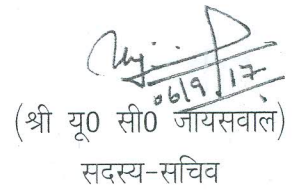 06/9/17
(श्री यू0 सी0 जायसवाल)
सदस्य-सचिव